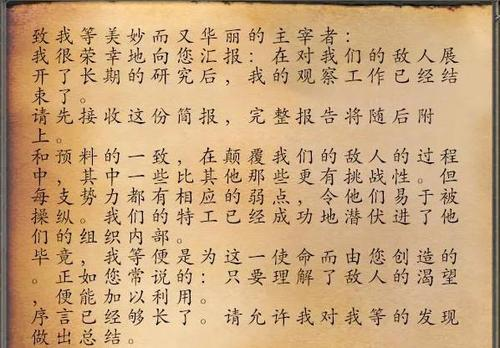 致我等美妙而又华丽的主宰者：
我很荣幸地向您汇报：在对我们的敌人展
开了长期的研究后，我的观察工作已经结
束了。
请先接收这份简报，完整报告将随后附
上。
和预料的一致，在颠覆我们的敌人的过程
中，其中一些比其他那些更有挑战性。但
每支势力都有相应的弱点，令他们易于被
操纵。我们的特工已经成功地潜伏进了他
们的组织内部。
毕竟，我等便是为这一使命而由您创造的
。正如您常说的：只要理解了敌人的渴望
，便能加以利用。
序言已经够长了。请允许我对我等的发现
做出总结。